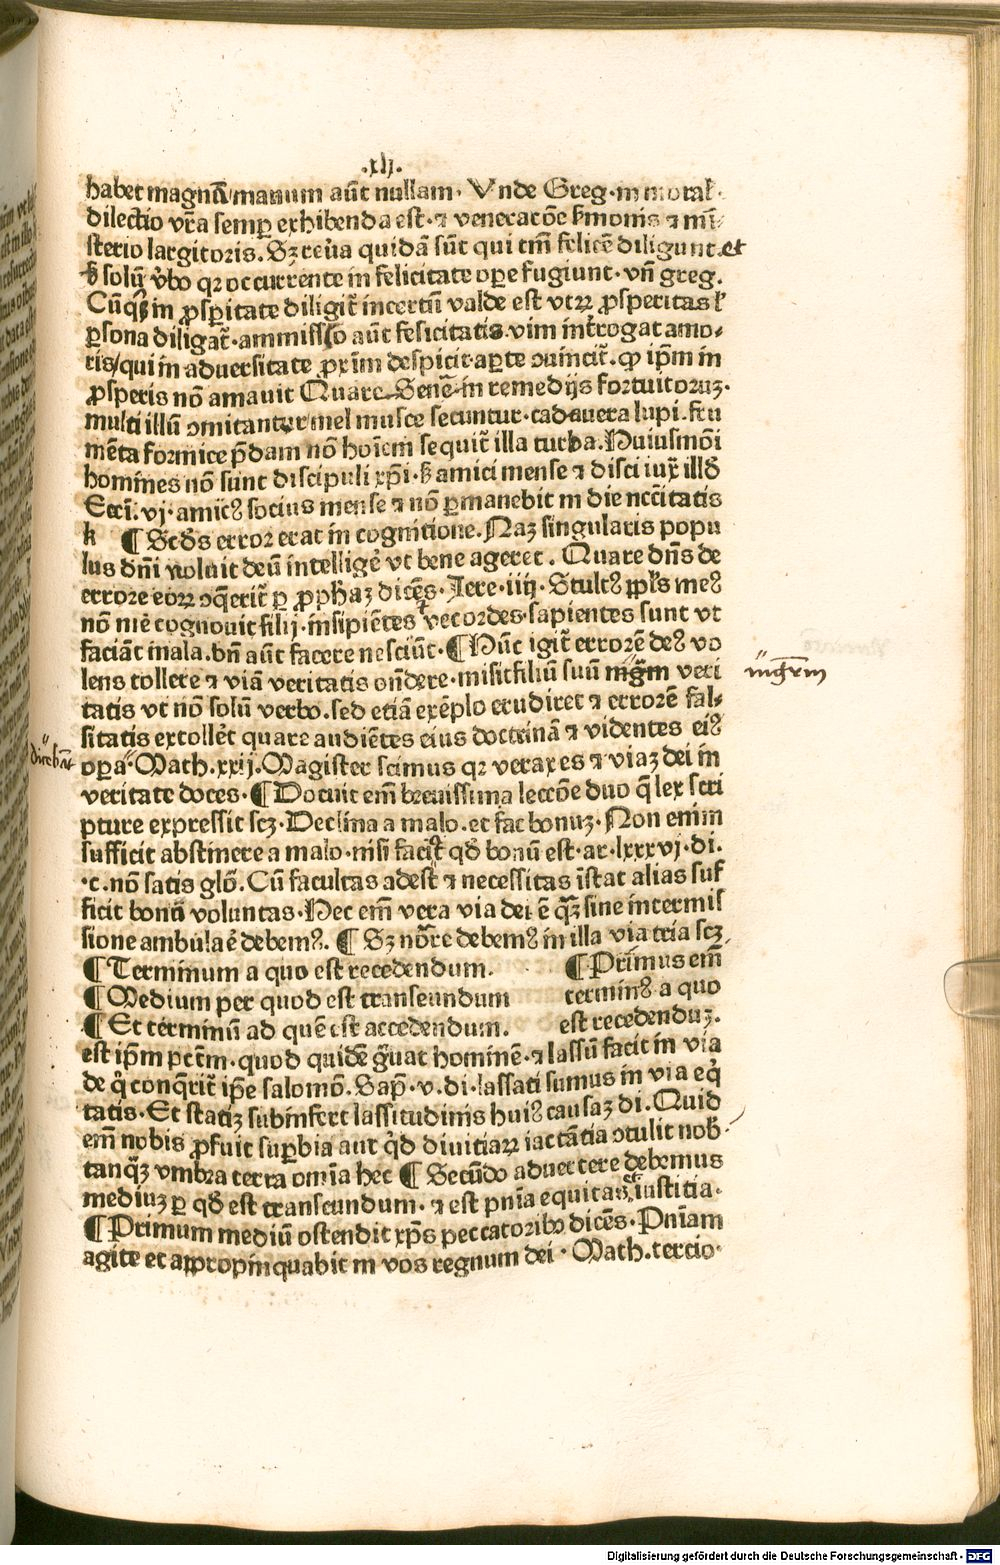 .xlj.
habet magnū/manum aūt nullam. Vnde Greg. in moral̄.
dilectio vr̄a semp̱ exhibenda est. ⁊ veneratōe ẜmonis ⁊ mī-
sterio largitoris. Sꝫ reũa quidā sūt qui tm̄ felicē diligunt. et
ħ solū v̓bo qꝛ occurrente in felicitate oꝑe fugiunt. vn̄ greg.
Cūqꝫ in ꝓsꝑitate diligit̄ incertū valde est vtꝝ ꝓsperitas ł
ꝑsona diligat̄. ammissio aūt felicitatis vim int̓rogat amo-
ris/qui in aduersitate ꝓxīm despicit. aꝑte ↄuincit̄. ꝙ ip̄m in
ꝓsperis nō amauit Quare Senē in remedijs fortuitoruꝫ.
multi illū ↄmitantur mel musce secuntur. cadauera lupi. fru
mēta formice p̄dam nō hoīem sequit̄ illa turba. Huiusmōi
homines nō sunt discipuli xp̄i. ẜ amici mense ⁊ disci iux̄ illđ
Eccī. vj. amicꝰ socius mense ⁊ nō ꝑmanebit in die ncc̄itatis
k ¶ Scđs error erat in cognitione. Naꝫ singularis popu
lus dn̄i noluit deū intellige̓ vt bene ageret. Quare dn̄s de
errore eoꝝ ↄq̄erit̄ ꝑ ꝓpħaꝫ dicēs. Iere. iiij. Stultꝰ pp̄ls meꝰ
nō mē cognouit filij. insipiētes ⁊ vecordes. sapientes sunt vt
faciāt mala. bn̄ aūt facere nesciūt. ¶ Hūc igit̄ errorē deꝰ vo
lens tollere ⁊ viā veritatis on̄dere. misit filiū suū mgr̄m veri
mgr̄m
tatis vt nō solū verbo. sed etiā exēplo erudiret ⁊ errorē fal-
sitatis extolle̓t quare audiētes eius doctrinā ⁊ videntes eiꝰ
dicebāt
opa̓ Math. xxij. Magister scimus qꝛ verax es ⁊ viaꝫ dei in
veritate doces. ¶ Docuit em̄ breuissima lectōe duo q̄ lex scri
pture expressit scꝫ. Declina a malo. et fac bonuꝫ. Non enim
sufficit abstinere a malo. nisi faciat qđ bonū est. ar. lxxxvj. di.
.c. nō satis glō. Cū facultas adest ⁊ necessitas īstat alias suf
ficit bona voluntas. Hec em̄ vera via dei ē qꝫ sine intermis
sione ambula̓e debemꝰ. ¶ Sꝫ nōre debemꝰ in illa via tria scꝫ
¶ Terminum a quo est recedendum. ¶ Primus em̄
¶ Medium per quod est transeundum terminꝰ a quo
¶ Et terminū ad quē est accedendum. est recedenduꝫ.
est ip̄m pctm̄. quod quidē g̓uat hominē. ⁊ lassū facit in via
de q̓ conq̄rit̄ ip̄e salomō. Sap̄. v. di. lassati sumus in via eq̓
tatis. Et statiꝫ subinfert lassitudinis huiꝰ causaꝫ di. Quid
em̄ nobis ꝓfuit suꝑbia aut q̓d diuitiaꝝ iactātia ↄtulit nob̄.
tanqꝫ vmbra terra omīa hec ¶ Secūdo aduertere debemus
mediuꝫ ꝑ qđ est transeundum. ⁊ est pnīa equitas ⁊ iustitia.
¶ Primum mediū ostendit xp̄s peccatoribꝰ dicēs. Pnīam
agite et appropinquabit in vos regnum dei. Math. tercio.
Digitalisierung gefördert durch die Deutsche Forschungsgemeinschaft - DFG